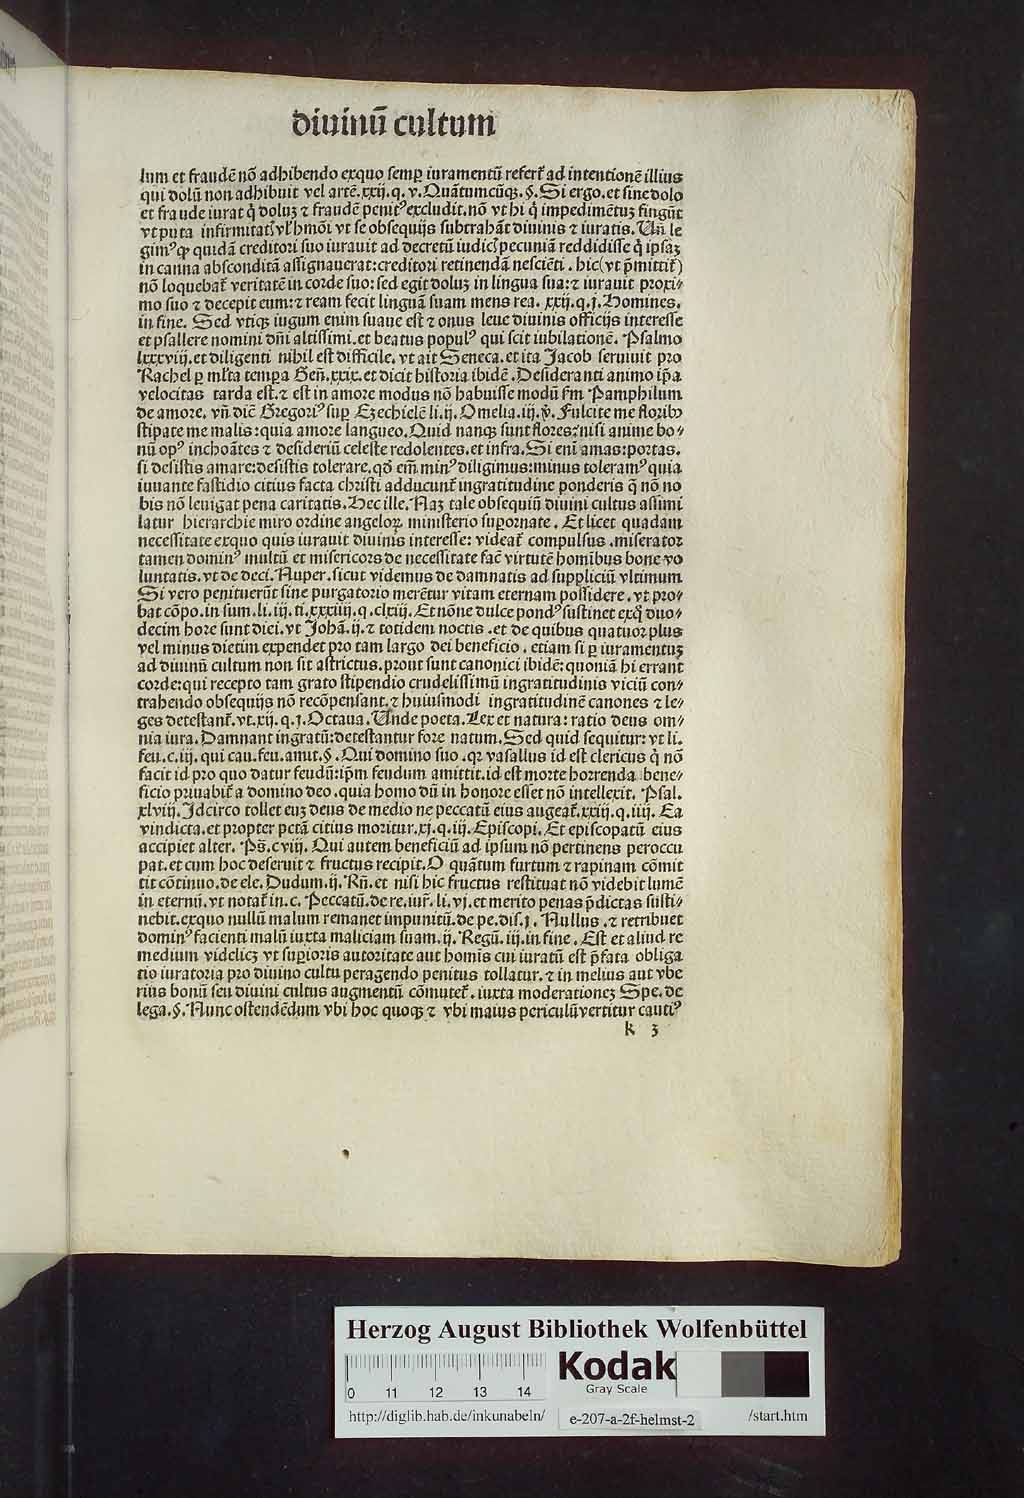 diuinū cultum
lum et fraudē nō adhibendo exquo semp̱ iuramentū refert̄ ad intentionē illius
qui dolū non adhibuit vel artē.xxij.q.v.Quātumcūqꝫ.§.Si ergo.et sine dolo
et fraude iurat q̇ doluꝫ ⁊ fraudē penitꝰ excludit.nō vt hi q̇ impedimētuꝫ fingūt
vt puta infirmitatꝭ vl' hmōi vt se obsequijs subtrahāt diuinis ⁊ iuratis. Uñ le
gimꝰ ꝙ quidā creditori suo iurauit ad decretū iudicꝭ pecuniā reddidisse q̇ ipsaꝫ
in canna abscōnditā assignauerat:creditori retinendā nesciēti. hic(vt p̄mittit̄)
nō loquebat̄ veritatē in corde suo:sed egit doluꝫ in lingua sua:⁊ iurauit proxi⸗
mo suo ⁊ decepit eum:⁊ ream fecit linguā suam mens rea. xxij.q.j.Homines.
in fine. Sed vtiqꝫ iugum enim suaue est ⁊ onus leue diuinis officijs interesse
et psallere nomini dñi altissimi.et beatus populꝰ qui scit iubilationē. Psalmo
lxxxviij.et diligenti nihil est difficile.vt ait Seneca.et ita Jacob seruiuit pro
Rachel p̱ ml'ta temp̱a Geñ.xxix.et dicit historia ibidē.Desideranti animo ip̄a
velocitas tarda est.⁊ est in amore modus nō habuisse modū s'm Pamphilum
de amore. vñ dicē Gregoriꝰ sup̱ Ezechielē li.ij.Omelia.iij.ꝟ. Fulcite me floribꝫ
stipate me malis:quia amore langueo.Quid nanqꝫ sunt flores:nisi anime bo⸗
nū opꝰ inchoātes ⁊ desideriū celeste redolentes.et infra.Si eni amas:portas.
si desistis amare:desistis tolerare.qd' em̄ minꝰ diligimus:minus toleramꝰ quia
iuuante fastidio citius facta christi adducunt̄ ingratitudine ponderis q̄ nō no
bis nō leuigat pena caritatis.Hec ille.Naꝫ tale obsequiū diuini cultus assimi
latur hierarchie miro ordine angeloꝝ ministerio sup̱ornate. Et licet quadam
necessitate exquo quis iurauit diuinis interesse: videat̄ compulsus.miserator
tamen dominꝰ multū et misericors de necessitate fac̄ virtutē hominibus bone vo
luntatis.vt de deci.Nuper.sicut videmus de damnatis ad suppliciū vltimum
Si vero penituerūt sine purgatorio merētur vitam eternam possidere.vt pro⸗
bat cōpo.in sum.li.iij.ti.xxxiiij.q.clxiij. Et nōne dulce pondꝰ sustinet exq̇ duo⸗
decim hore sunt diei.vt Johā.ij.⁊ totidem noctis.et de quibus quatuor plus
vel minus dietim expendet pro tam largo dei beneficio. etiam si p̱ iuramentuꝫ
ad diuinū cultum non sit astrictus.prout sunt canonici ibidē:quoniā hi errant
corde:qui recepto tam grato stipendio crudelissimū ingratitudinis viciū con⸗
trahendo obsequijs nō recōpensant.⁊ huiusmodi ingratitudinē canones ⁊ le⸗
ges detestant̄.vt.xij.q.j.Octaua.Unde poeta.Lex et natura:ratio deus om⸗
nia iura.Damnant ingratū:detestantur fore natum.Sed quid sequitur:vt li.
feu.c.iij. qui cau.feu.amit.§.Qui domino suo.qꝛ vasallus id est clericus q̇ nō
facit id pro quo datur feudū:ip̄m feudum amittit.id est morte horrenda bene⸗
ficio priuabit̄ a domino deo.quia homo dū in honore esset nō intellexit. Psal.
xlviij.Idcirco tollet euꝫ deus de medio ne peccatū eius augeat̄.xxiij.q.iiij. Ea
vindicta.et propter pctā citius moritur.xj.q.iij. Episcopi. Et episcopatū eius
accipiet alter. Ps̄.cviij. Qui autem beneficiū ad ipsum nō pertinens peroccu
pat.et cum hoc deseruit ⁊ fructus recipit.O quātum furtum ⁊ rapinam cōmit
tit cōtinuo.de ele. Dudum.ij. Rñ.et nisi hic fructus restituat nō videbit lumē
in eternū.vt notat̄ in.c. Peccatū.de re.iur̄.li.vj.et merito penas p̄dictas susti⸗
nebit.exquo nullū malum remanet impunitū.de pe.dis.j. Nullus.⁊ retribuet
dominꝰ facienti malū iuxta maliciam suam.ij. Regū.iij.in fine. Est et aliud re
medium videlicꝫ vt sup̱ioris autoritate aut homīs cui iuratū est p̄fata obliga
tio iuratoria pro diuino cultu peragendo penitus tollatur.⁊ in melius aut vbe
rius bonū seu diuini cultus augmentū cōmutet̄.iuxta moderationeꝫ Spe.de
lega.§.Nunc ostendēdum vbi hoc quoqꝫ ⁊ vbi maius periculū vertitur cautiꝰ
k 3
Herzog August Bibliothek Wolfenbüttel
0 11 12 13 14
Kodak
Gray Scale
http://diglib.hab.de/inkunabeln/ e-207-a-2f-helmst-2 /start.htm